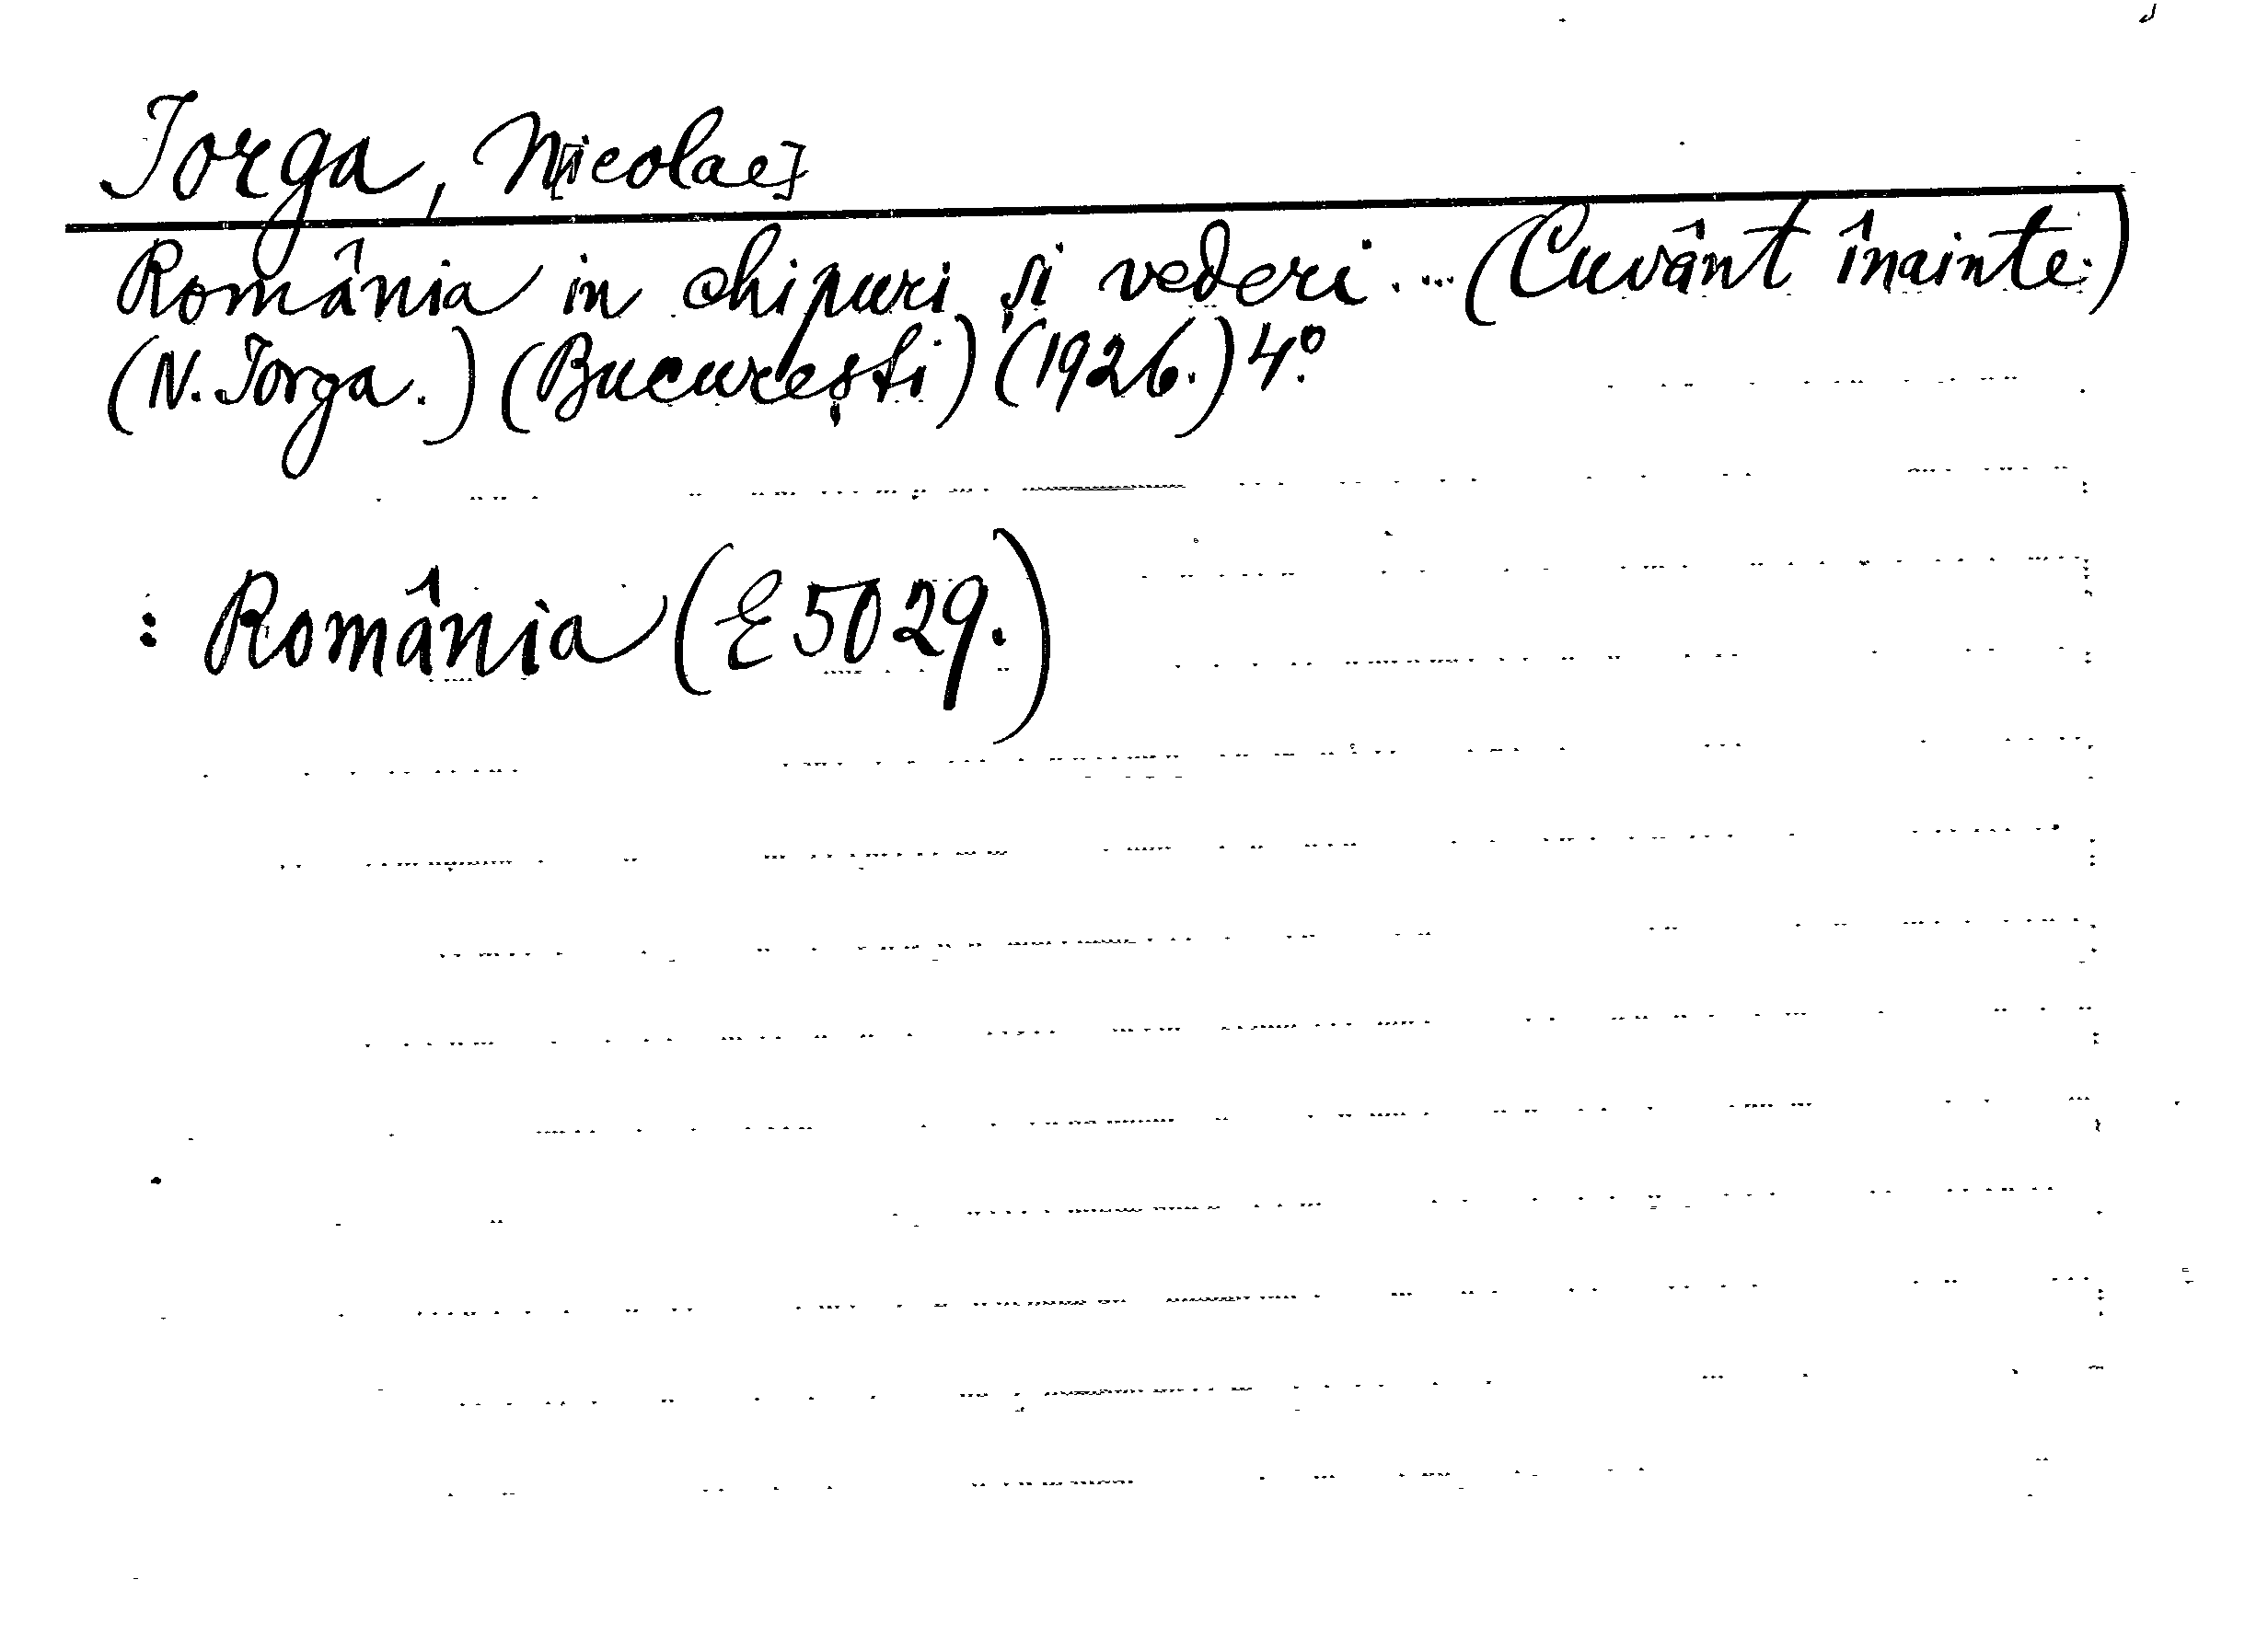 Iorga, N[icolae]
România in chipuri și vederi. ... (Cuvânt înainte.)
(N. Iorga.) (București) (1926.) 4º.
: România (E 5029.)